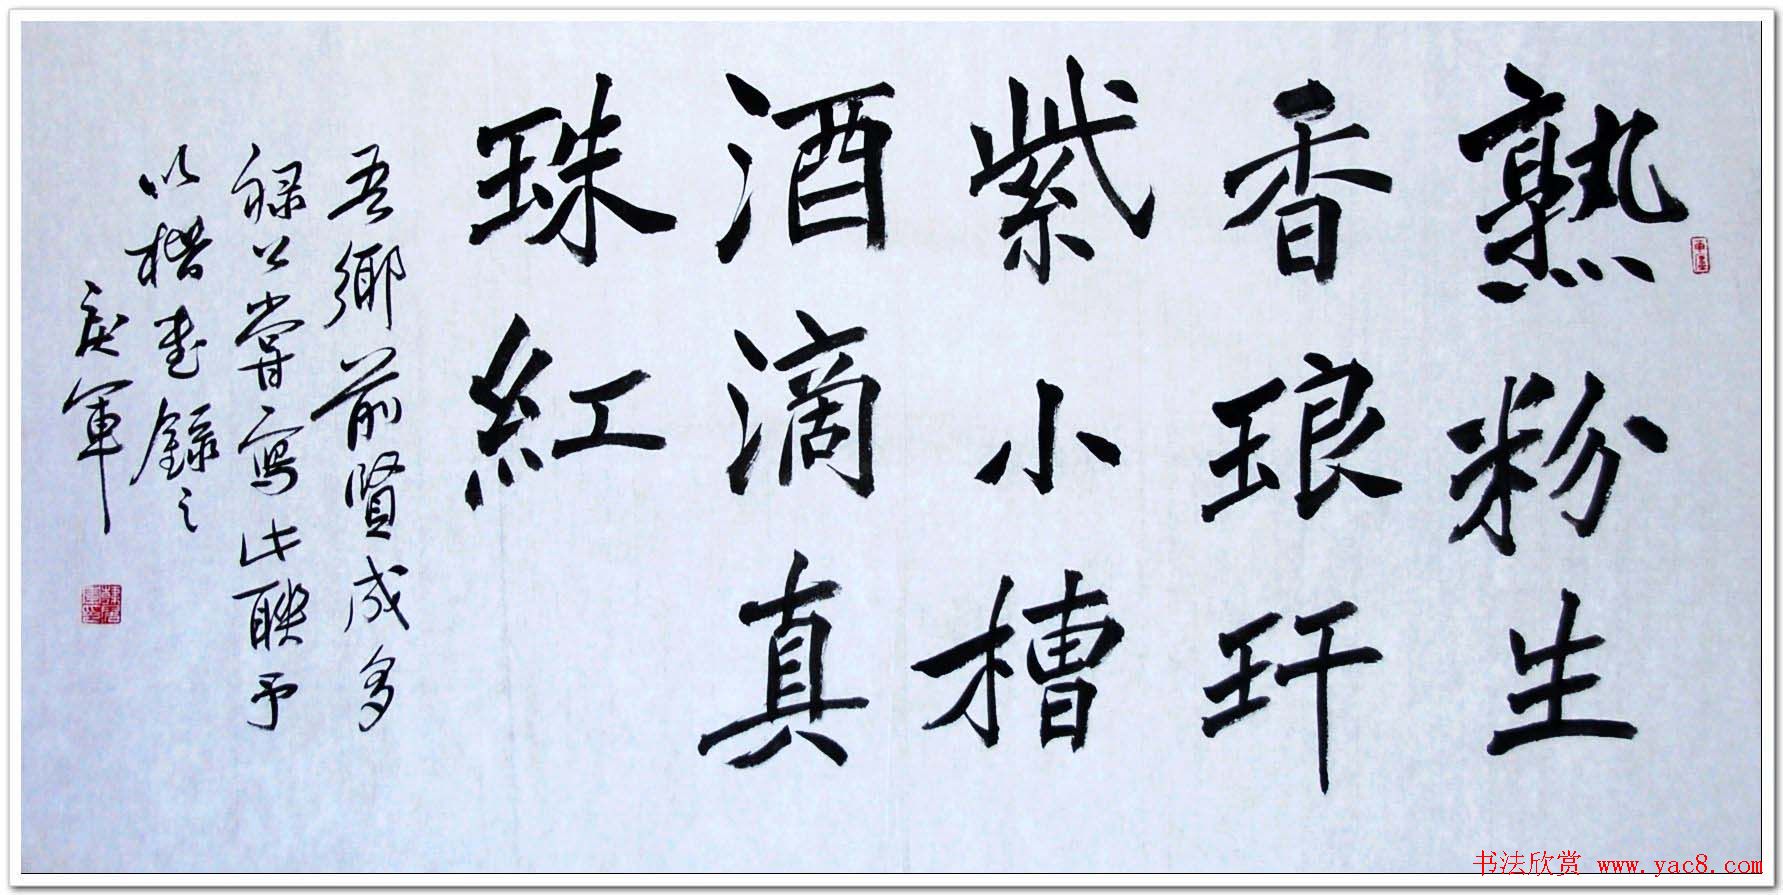 熟粉生
香琅玕
紫小槽
酒滴真
珠紅
吾鄉前賢成多
禄公嘗寫此聯予
以楷書錄之
軍
书法欣赏 www.yac8.com